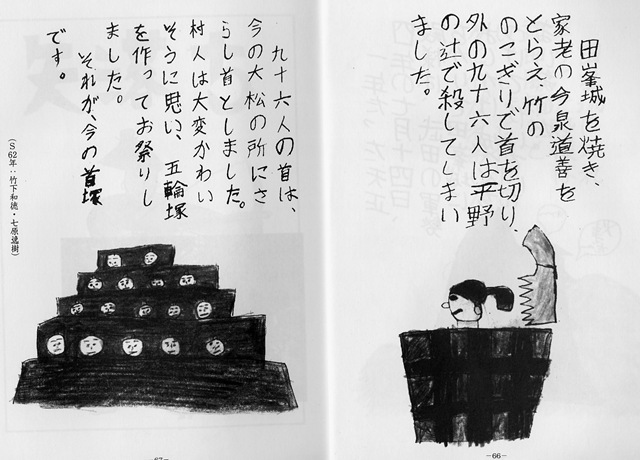 田峯城を焼き、
家老の今泉道善を
とらえ、竹の
のこぎりで首を切り、
外の九十六人は平野
の辻で殺してしまい
ました。
－66－
九十六人の首は、
今の大松の所にさ
らし首としました。
村人は大変かわい
そうに思い、五輪塚
を作ってお祭りし
ました。
それが、今の首塚
です。
（S62年：竹下和徳・七原逸樹）
－67－